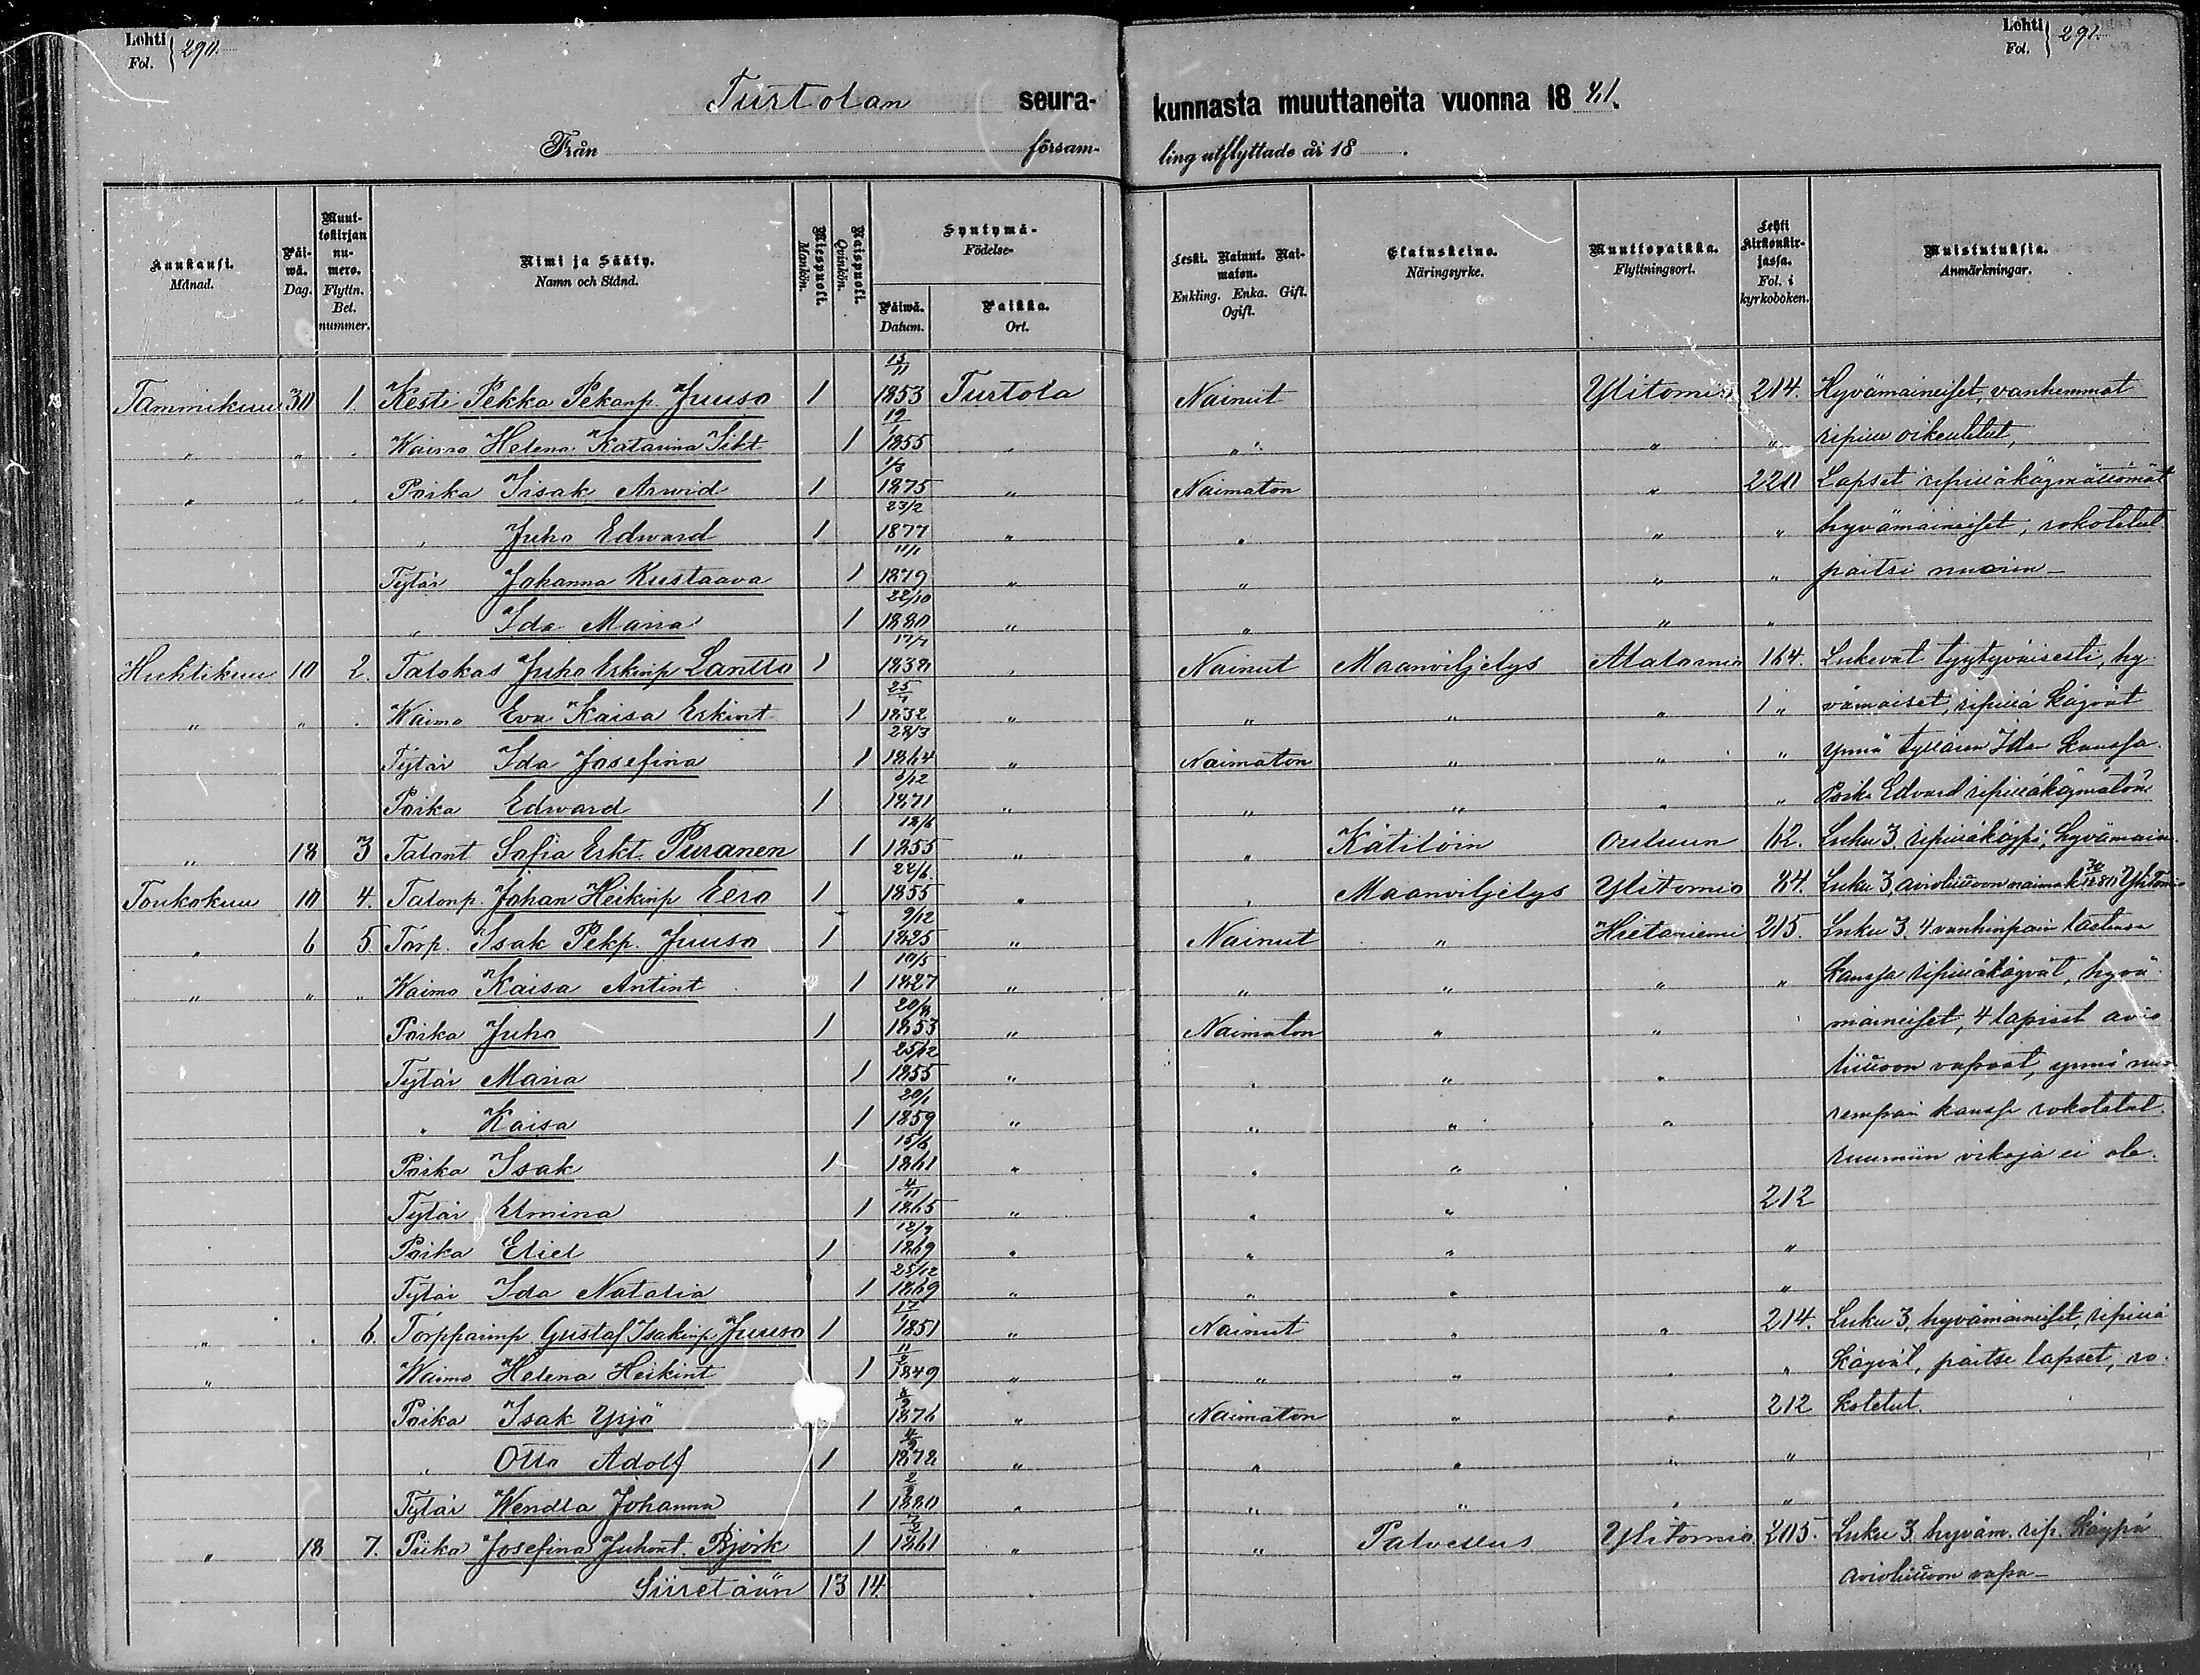 Lehti Fol. 290.
Lehti Fol. 291.
Turtolan seurakunnasta muuttaneita vuonna 1881.
Från församling utflyttade år 18 .
Kuukausi. Månad.
Päiwä. Dag.
Muuttokirjan numero. Flyttn. Bet. nummer.
Nimi ja Sääty. Namn och Stånd.
Miespuoli. Mankön.
Naispuoli. Quinkön.
Syntymä- Födelse-
Päiwä. Datum.
Paikka. Ort.
Leski. Nainut. Naimaton. Enkling. Enka. Gift. Ogift.
Elatuskeino. Näringsyrke.
Muuttopaikka. Flyttningsort.
Lehti kirkonkirjassa. Fol. i kyrkoboken.
Muistutuksia. Anmärkningar.
Tammikuu 30 1. Kesti Pekka Pekanp. Juuso 1 13/11 1853 Turtola Nainut Ylitornio 214. Hyvämaineiset, vanhemmat
" " " Waimo Helena Katarina Isikt 1 19/ 1855 " " " " ripille oikeutetut,
" " " Poika Iisak Arwid 1 1/3 1875 " Naimaton " 220 Lapset ripilläkäymättömät
" Juho Edward 1 23/2 1877 " " " " hyvämaineiset, rokotetut
Tytär Johanna Kustaava 1 11/1 1879 " " " " paitsi nuorin
" Ida Maria 1 22/10 1880 " " " "
Huhtikuu 10 2. Talokas Juho Erkinp Lantto 1 17/7 1838 " Nainut Maanviljelys Alatornio 164. Lukevat tyytyväisesti, hy-
" " " Waimo Eva Kaisa Erkint 1 25/ 1832 " " " " " vämaiset, ripillä käyvät
Tytär Ida Josefina 1 28/3 1864 " Naimaton " " " ynnä tyttären Idan kanssa.
Poika Edward 1 3/12 1871 " " " " " Poika Edvard ripilläkäymätön
" 18 3 Talont Sofia Erkt. Puranen 1 18/6 1855 " " Kätilöin Ouluun 62. Luku 3, ripilläkäypä, hyvämain.
Toukokuu 10 4. Talonp. Johan Heikinp Eero 1 22/6 1855 " " Maanviljelys Ylitornio 84. Luku 3, avioliittoon naimak. Ylitornio
" 6 5. Torp. Isak Pekp. Juuso 1 9/12 1825 " Nainut " Hietaniemi 215. Luku 3, 4 vanhinpain lastensa
" " " Waimo Kaisa Antint 1 10/5 1827 " " " " " kanssa ripilläkäyvät, hyvä-
Poika Juho 1 20/8 1853 " Naimaton " " maineiset, 4 lapiset avio-
Tytär Maria 1 25/12 1855 " " " " liittoon vapaat, ynnä nuo-
" Kaisa 1 20/1 1859 " " " " rempain kanssa rokotetut.
Poika Isak 1 15/6 1861 " " " ruumiin vikoja ei ole.
Tytär Elmina 1 4/11 1865 " " " 212
Poika Eliel 1 12/7 1869 " " " "
Tytär Ida Natalia 1 25/12 1869 " " " "
" " 6. Torpparinp Gustaf Isakinp Juuso 1 17/ 1851 " Nainut " " 214. Luku 3, hyvämaineiset, ripillä
" Waimo Helena Heikint 1 11/2 1849 " " " " " käyvät, paitse lapset, ro-
Poika Isak Yrjö 1876 " Naimaton " " 212 kotetut.
" Otto Adolf 1 1878 " " " " "
Tytär Wendla Johanna 1 1880 " " " " "
" 18 7. Piika Josefina Juhont. Björk 1 1861 " " Palvellus Ylitornio 205. Luku 3, hyväm. rip. käypä
Siiretään 13 14. avioliittoon vapa